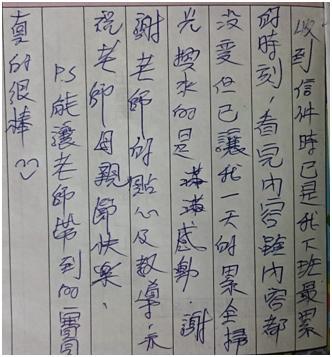 收到信件時已是我下班最累
的時刻，看完內容雖內容都
沒變但已讓我一天的累全掃
光換來的是滿滿感動.謝
謝老師的點心及教導，亦
祝老師母親節快樂、
PS能讓老師帶到的寶貝
真的很棒